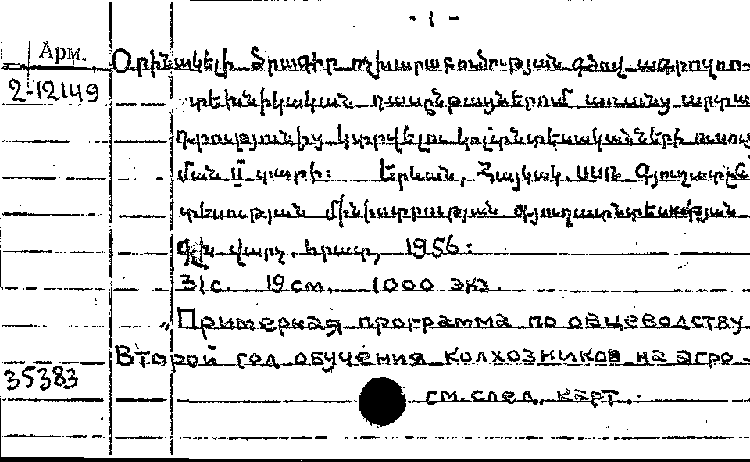 - 1 -
Арм. Օրինակելի ծրագիր ոչխարաբուծության գծով ագրոզոո-
2-12149 տեխնիկական դասընթացներում առանց արտա
դրությունից կտրվելու կոլտնտեսականների ուսուց
ման II տարի: Երևան, Հայկակ. ՍՍՌ Գյուղատնտ
տեսության մինիստրության գյուղատնտեսական
գիտ. վարչ. հրատ, 1956:
31с. 19 см. 1000 экз.
„Примерная программа по овцеводству
Второй год обучения колхозников на агро-
35383 см. след. карт.